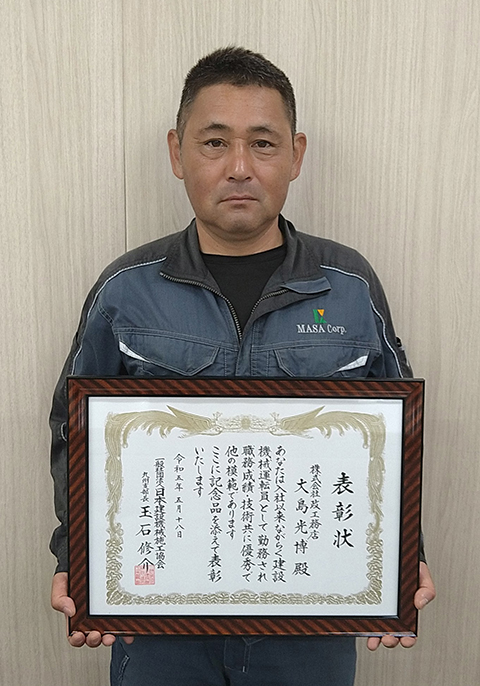 MASA Corp.
表彰状
株式会社政工務店
大島光博 殿
あなたは入社以来ながらく建設
機械運転員として勤務され
職務成績・技術共に優秀で
他の模範であります
ここに記念品を添えて表彰
いたします
令和五年五月十八日
一般社団法人日本建設機械施工協会
九州支部長 玉石修介